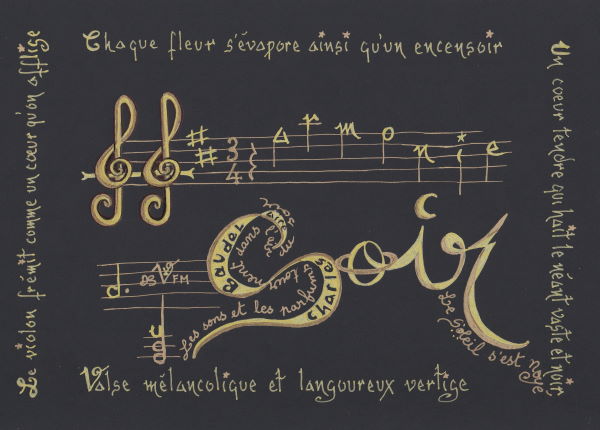 Chaque fleur s'évapore ainsi qu'un encensoir
Le violon frémit comme un cœur qu'on afflige
Un cœur tendre qui hait le néant vaste et noir
3
4
a r m o n i e
Soir
Baudel aire
Charles
Les sons et les parfums tournent dans l'air du soir
Le Soleil s'est noyé
FM
Valse mélancolique et langoureux vertige